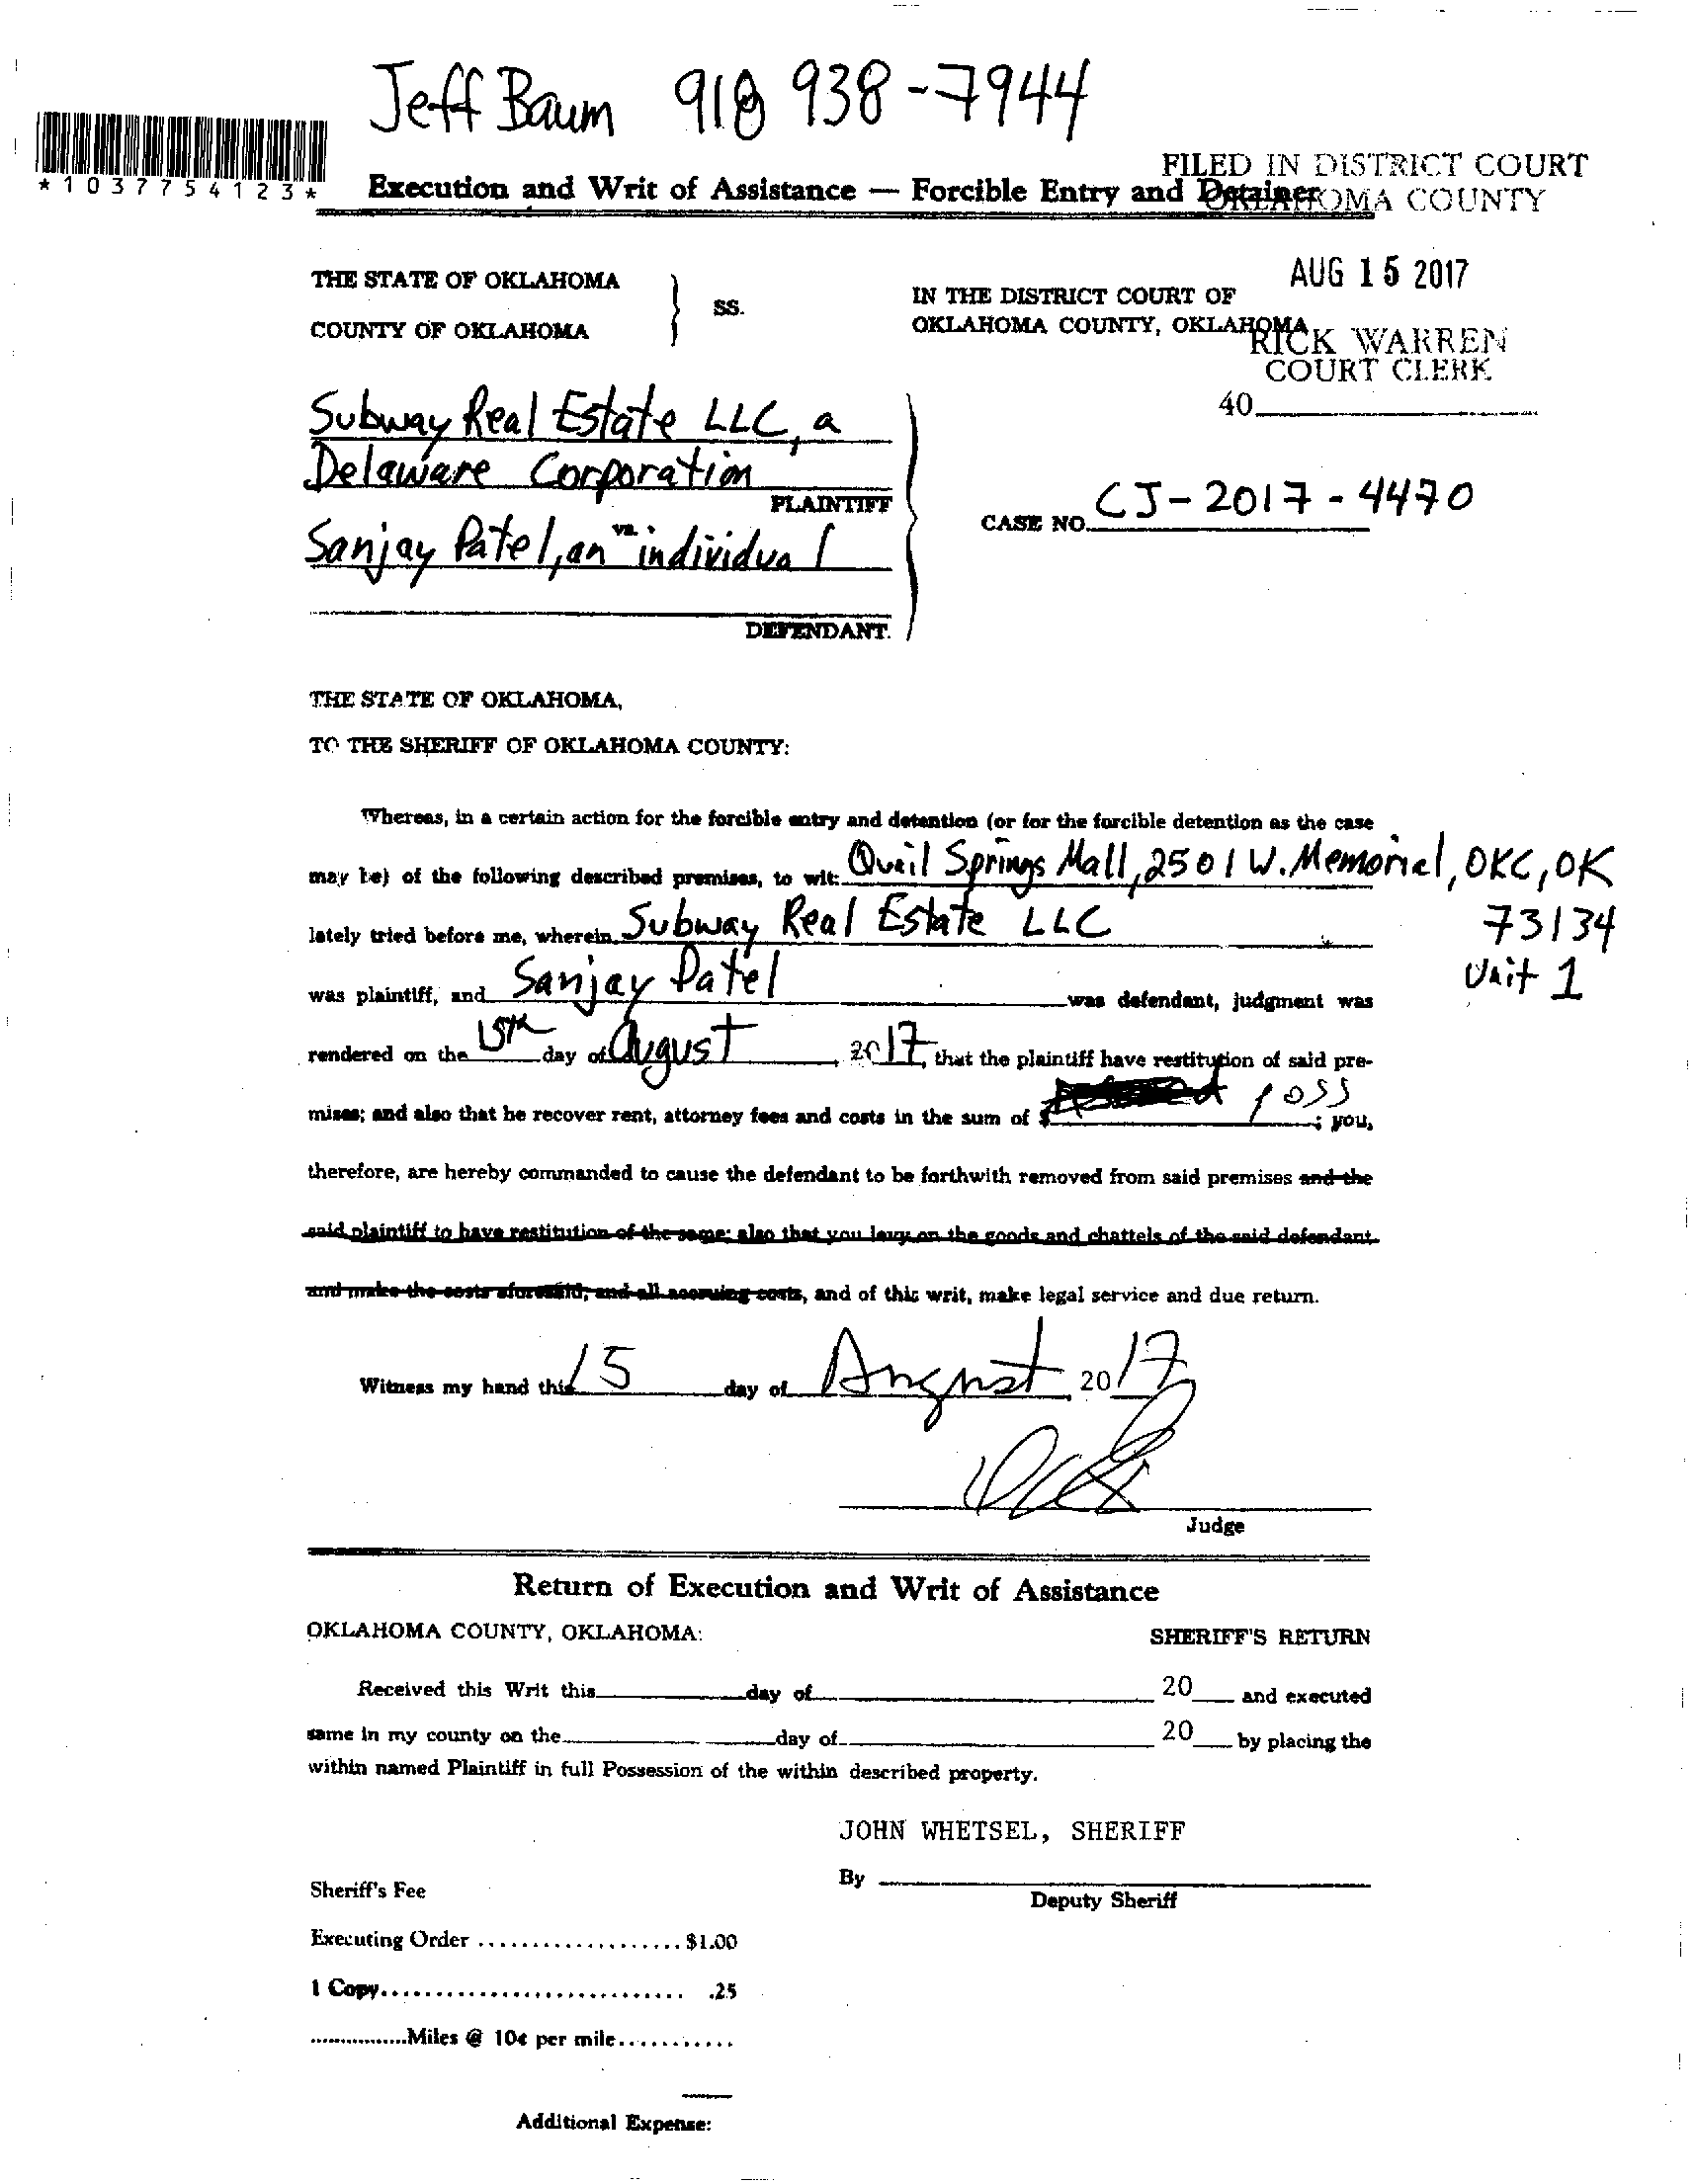 Jeff Baum 918 938-7944
*1037754123*
FILED IN DISTRICT COURT
Execution and Writ of Assistance — Forcible Entry and Detainer
OKLAHOMA COUNTY
AUG 15 2017
THE STATE OF OKLAHOMA
SS.
IN THE DISTRICT COURT OF
COUNTY OF OKLAHOMA
OKLAHOMA COUNTY, OKLAHOMA
RICK WARREN
COURT CLERK
40
Subway Real Estate LLC, a
Delaware Corporation
PLAINTIFF
CASE NO. CJ-2017-4470
vs.
Sanjay Patel, an individual
DEFENDANT.
THE STATE OF OKLAHOMA,
TO THE SHERIFF OF OKLAHOMA COUNTY:
Whereas, in a certain action for the forcible entry and detention (or for the forcible detention as the case
may be) of the following described premises, to wit: Quail Springs Mall, 2501 W. Memorial, OKC, OK
73134
Unit 1
lately tried before me, wherein Subway Real Estate LLC
was plaintiff, and Sanjay Patel was defendant, judgment was
rendered on the 15th day of August, 2017, that the plaintiff have restitution of said pre-
mises; and also that he recover rent, attorney fees and costs in the sum of $ poss; you,
therefore, are hereby commanded to cause the defendant to be forthwith removed from said premises and the
said plaintiff to have restitution of the same; also that you levy on the goods and chattels of the said defendant
and make the costs aforesaid, and all accruing costs, and of this writ, make legal service and due return.
Witness my hand this 15 day of August, 2017
Judge
Return of Execution and Writ of Assistance
OKLAHOMA COUNTY, OKLAHOMA:
SHERIFF'S RETURN
Received this Writ this day of 20 and executed
same in my county on the day of 20 by placing the
within named Plaintiff in full Possession of the within described property.
JOHN WHETSEL, SHERIFF
By
Deputy Sheriff
Sheriff's Fee
Executing Order .................... $1.00
1 Copy............................ .25
................Miles @ 10¢ per mile...........
Additional Expense: